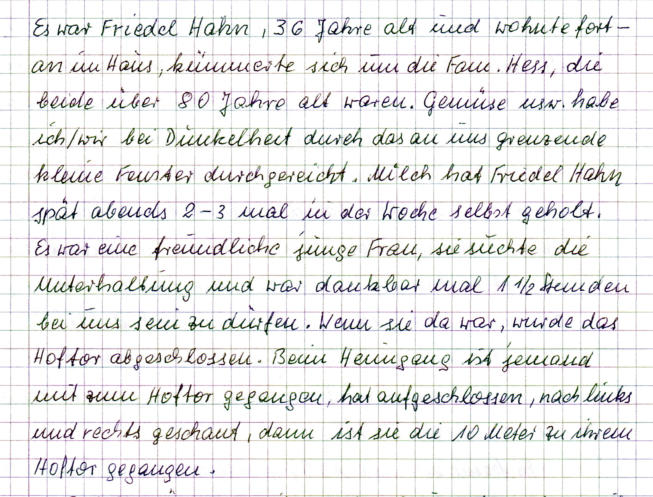 Es war Friedel Hahn, 36 Jahre alt und wohnte fort-
an im Haus, kümmerte sich um die Fam. Hess, die
beide über 80 Jahre alt waren. Gemüse usw. habe
ich/wir bei Dunkelheit durch das an uns grenzende
kleine Fenster durchgereicht. Milch hat Friedel Hahn
spät abends 2-3 mal in der Woche selbst geholt.
Es war eine freundliche junge Frau, sie suchte die
Unterhaltung und war dankbar mal 1 1/2 Stunden
bei uns sein zu dürfen. Wenn sie da war, wurde das
Hoftor abgeschlossen. Beim Heimgang ist jemand
mit zum Hoftor gegangen, hat aufgeschlossen, nach links
und rechts geschaut, dann ist sie die 10 Meter zu ihrem
Hoftor gegangen.